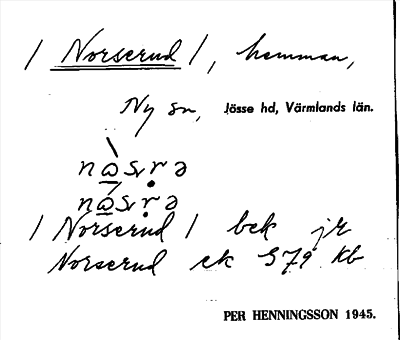 / Norserud /, hemman,
Ny sn, Jösse hd, Värmlands län.
/ Norserud / bek jr
Norserud ek 579 Kb
PER HENNINGSSON 1945.